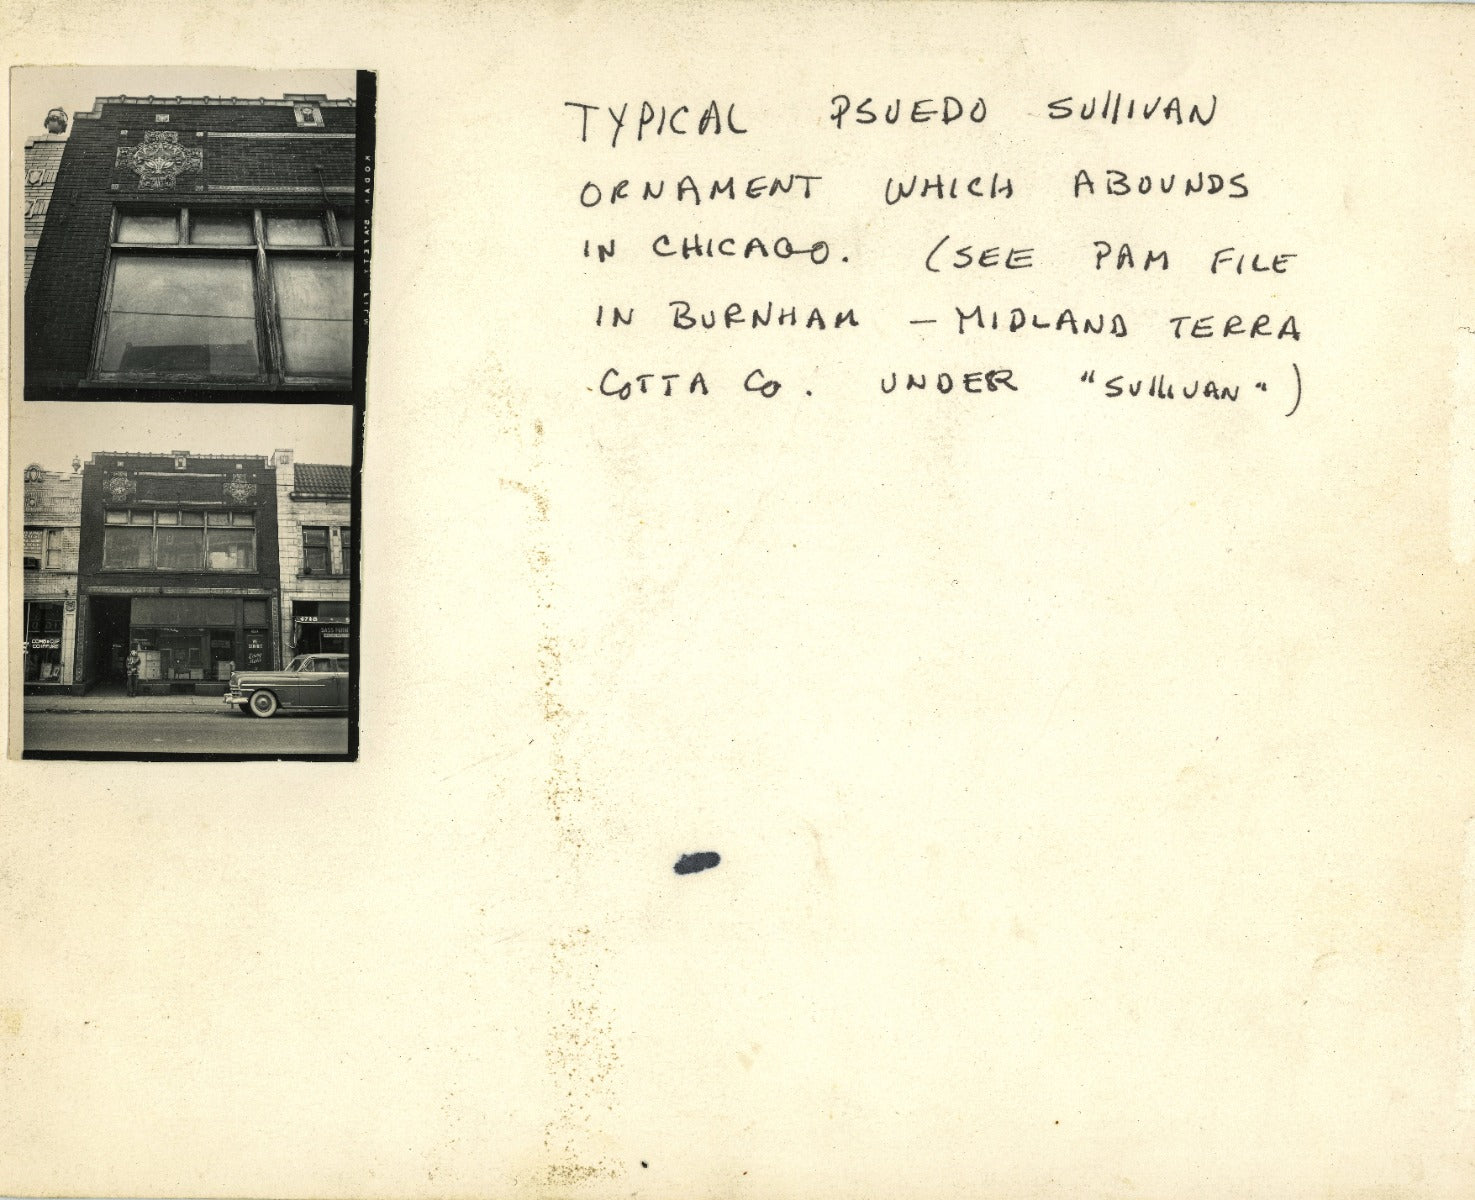 TYPICAL PSUEDO SULLIVAN
ORNAMENT WHICH ABOUNDS
IN CHICAGO. (SEE PAM FILE
IN BURNHAM — MIDLAND TERRA
COTTA CO. UNDER "SULLIVAN")
KODAK SAFETY FILM
COMB & CUP
COIFFURE